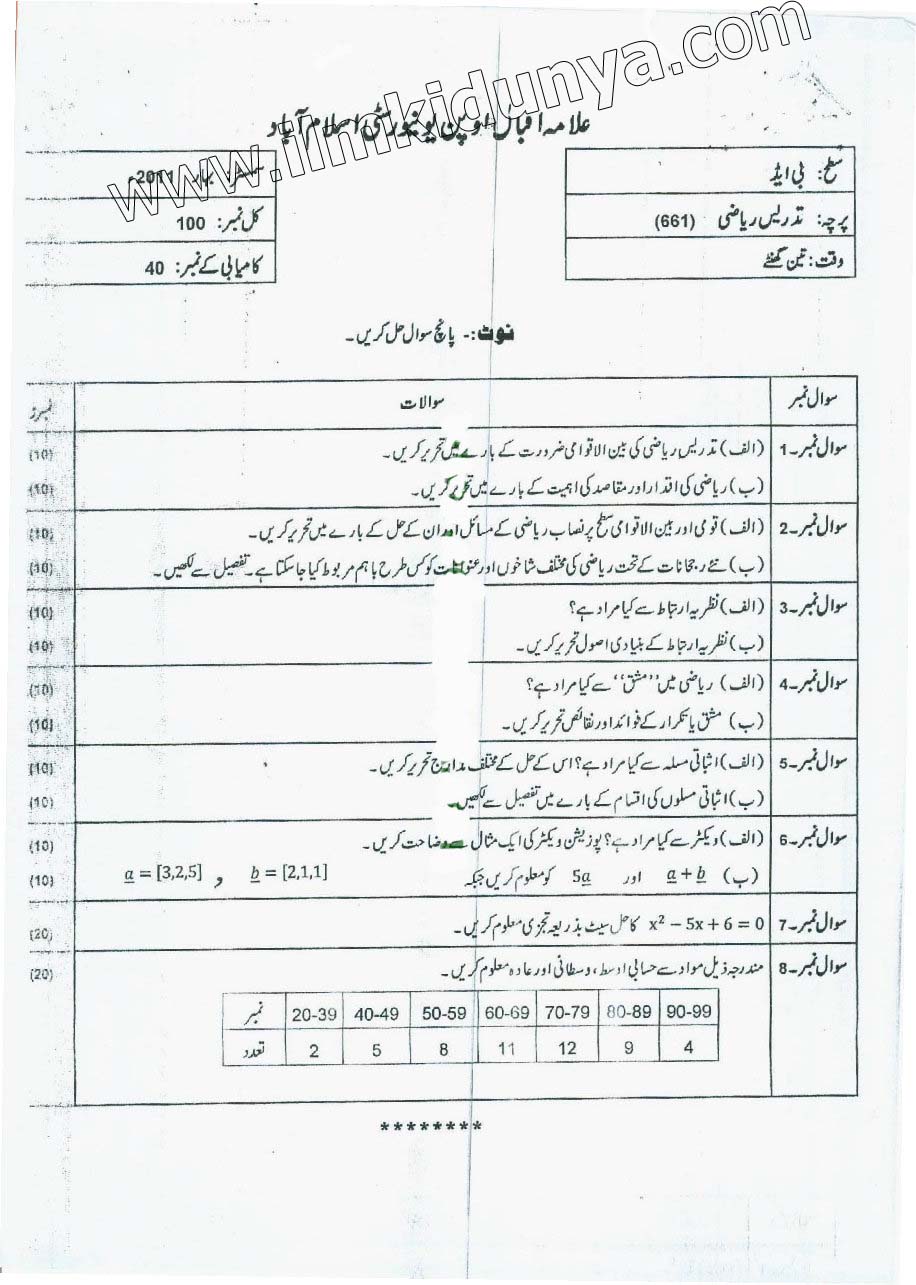 www.ilmkidunya.com
علامہ اقبال اوپن یونیورسٹی اسلام آباد
سطح: بی ایڈ
سمسٹر بہار 2011ء
پرچہ: تدریس ریاضی (661)
کل نمبر: 100
وقت: تین گھنٹے
کامیابی کے نمبر: 40
نوٹ:- پانچ سوال حل کریں۔
سوال نمبر سوالات نمبرز
سوال نمبر۔1 (الف) تدریس ریاضی کی بین الاقوامی ضرورت کے بارے میں تحریر کریں۔ (10)
(ب) ریاضی کی اقدار اور مقاصد کی اہمیت کے بارے میں تحریر کریں۔ (10)
سوال نمبر۔2 (الف) قومی اور بین الاقوامی سطح پر نصاب ریاضی کے مسائل اور ان کے حل کے بارے میں تحریر کریں۔ (10)
(ب) نئے رجحانات کے تحت ریاضی کی مختلف شاخوں اور عنوانات کو کس طرح باہم مربوط کیا جا سکتا ہے۔ تفصیل سے لکھیں۔ (10)
سوال نمبر۔3 (الف) نظریہ ارتباط سے کیا مراد ہے؟ (10)
(ب) نظریہ ارتباط کے بنیادی اصول تحریر کریں۔ (10)
سوال نمبر۔4 (الف) ریاضی میں ”مشق“ سے کیا مراد ہے؟ (10)
(ب) مشق یا تکرار کے فوائد اور نقائص تحریر کریں۔ (10)
سوال نمبر۔5 (الف) اثباتی مسلہ سے کیا مراد ہے؟ اس کے حل کے مختلف مدارج تحریر کریں۔ (10)
(ب) اثباتی مسلوں کی اقسام کے بارے میں تفصیل سے لکھیں۔ (10)
سوال نمبر۔6 (الف) ویکٹر سے کیا مراد ہے؟ پوزیشن ویکٹر کی ایک مثال سے وضاحت کریں۔ (10)
(ب) a + b اور 5a کو معلوم کریں جبکہ b = [2,1,1] , a = [3,2,5] (10)
سوال نمبر۔7 x² − 5x + 6 = 0 کا حل سیٹ بذریعہ تجزی معلوم کریں۔ (20)
سوال نمبر۔8 مندرجہ ذیل مواد سے حسابی اوسط، وسطانی اور عادہ معلوم کریں۔ (20)
نمبر 20-39 40-49 50-59 60-69 70-79 80-89 90-99
تعدد 2 5 8 11 12 9 4
********